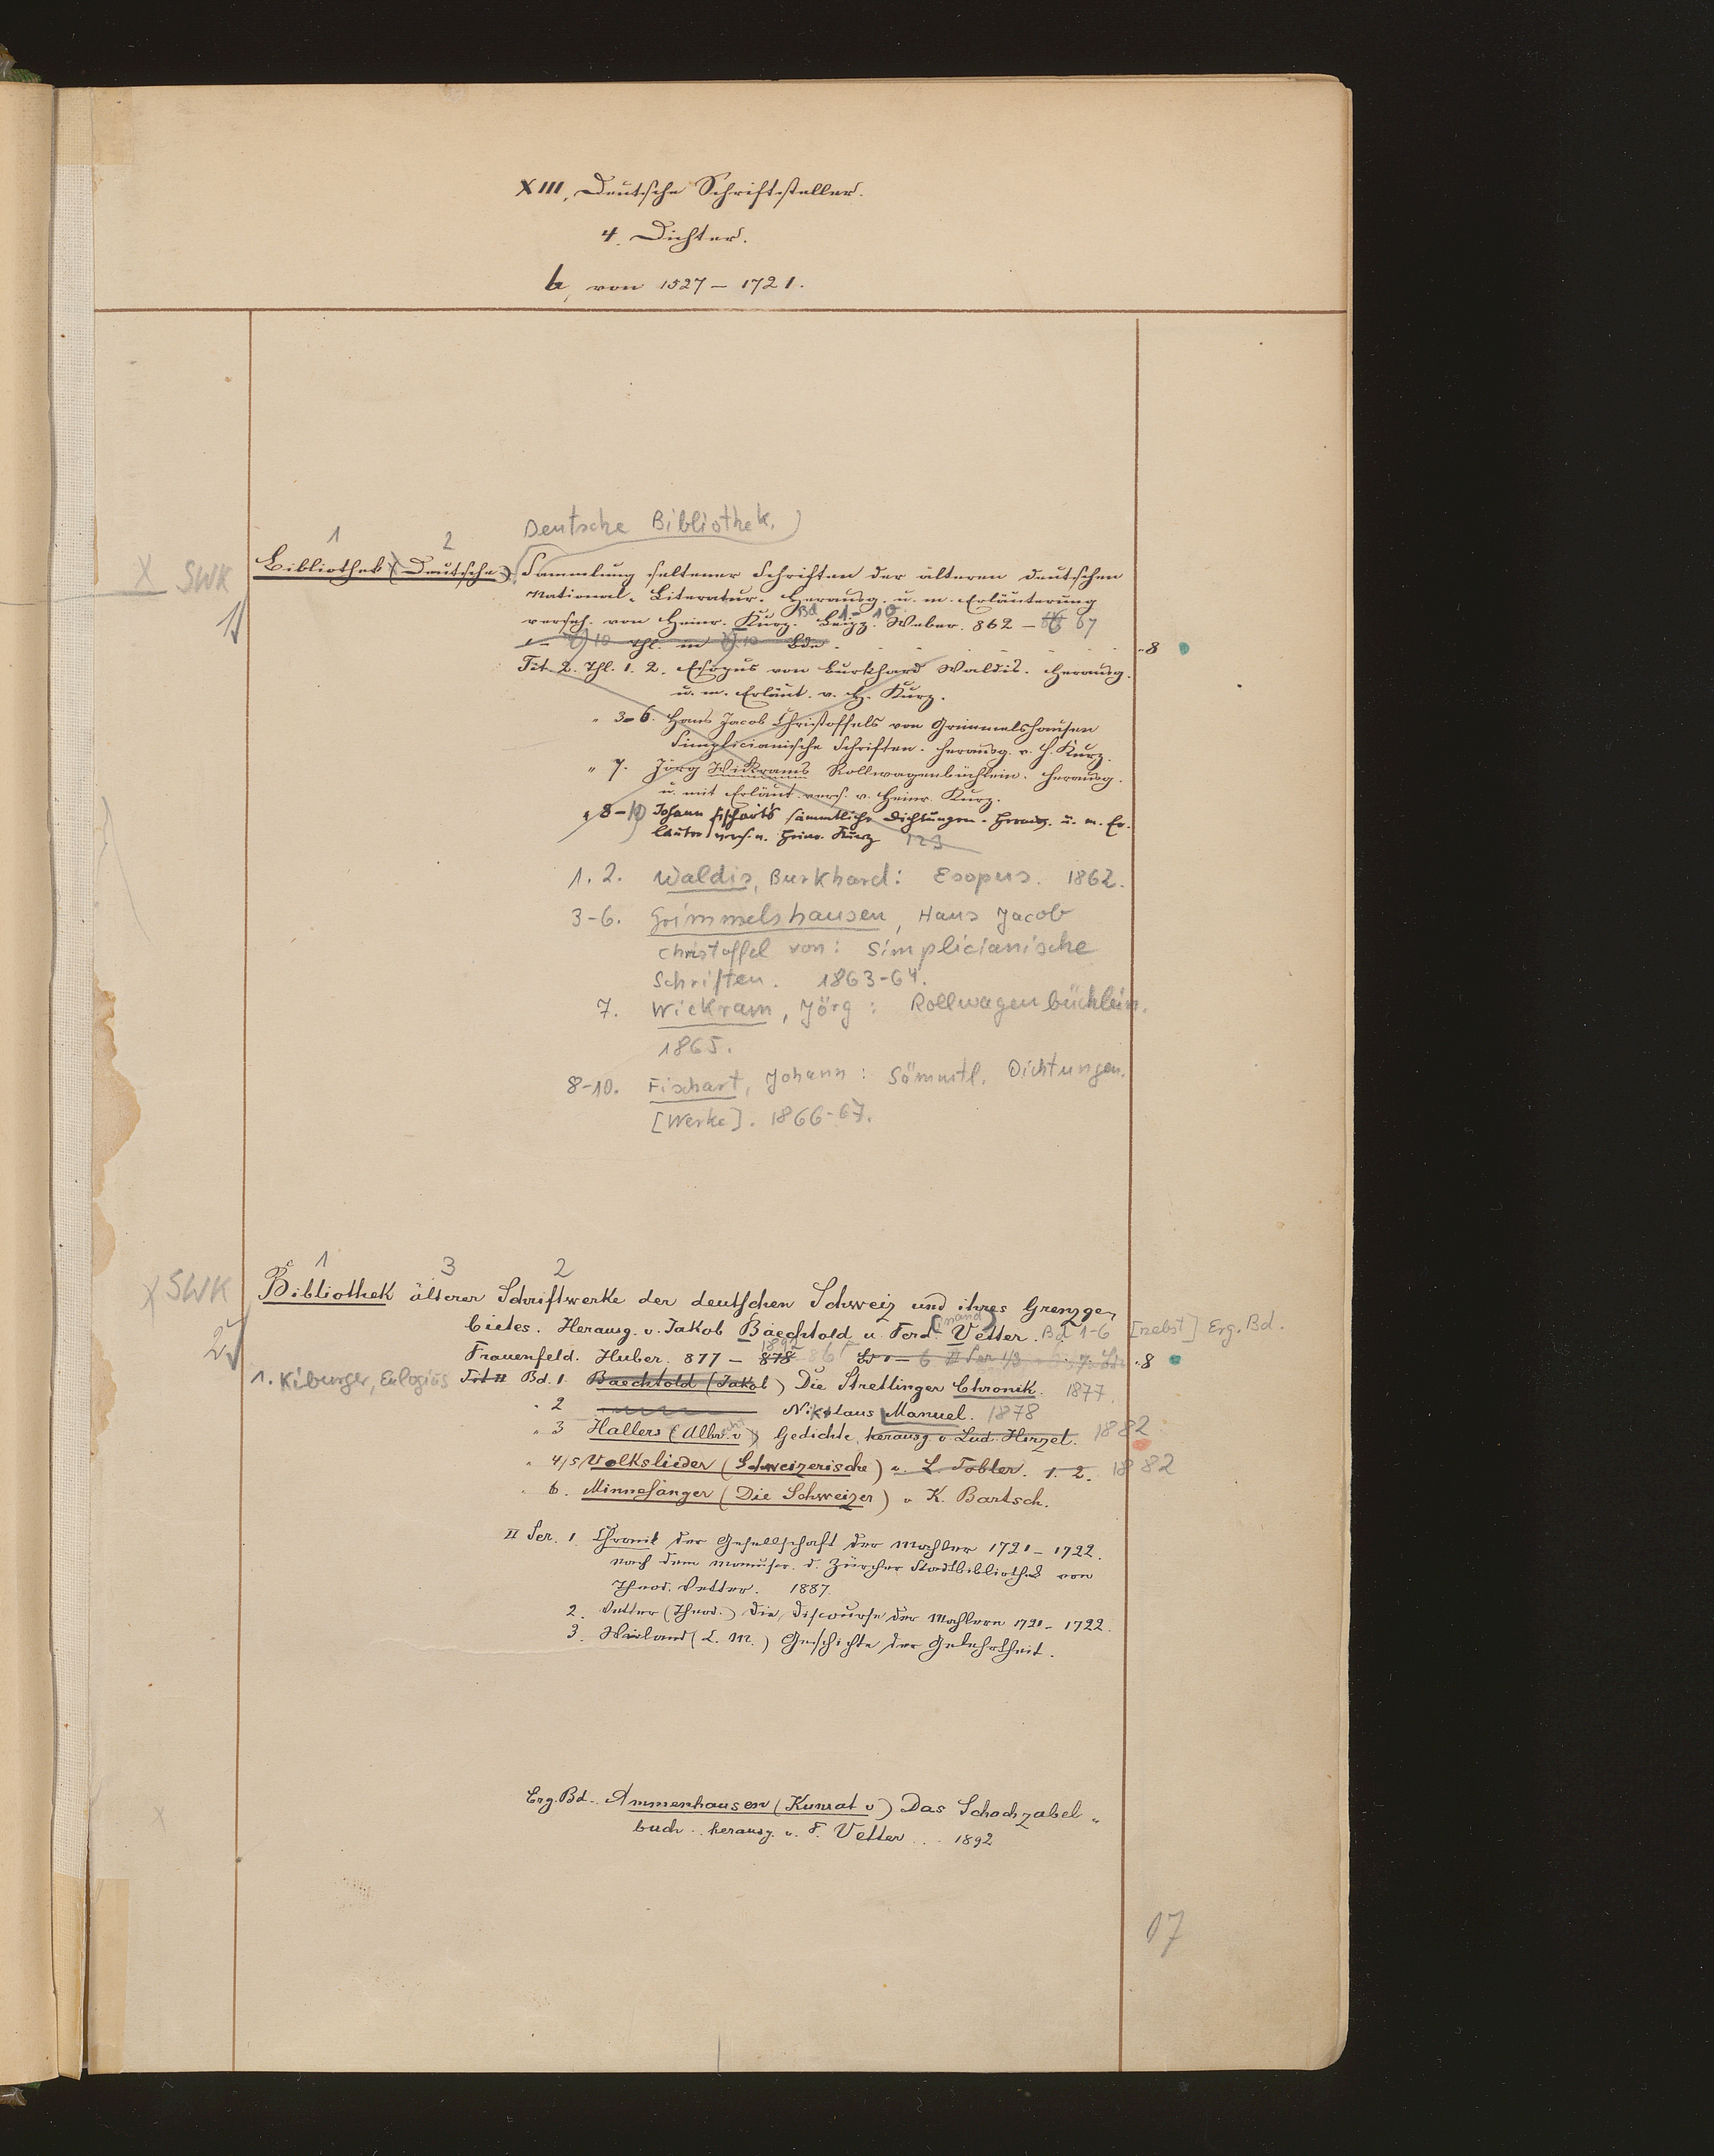 XIII, Deutsche Schriftsteller.
4. Dichter.
b, von 1527 – 1721.
Deutsche Bibliothek.
1 2
X SWK Bibliothek (Deutsche) Sammlung seltener Schriften der älteren deutschen
National-Literatur. Herausg. u. m. Erläuterung
1) versch. von Heinr. Kurz. Bd 1-10. Leipz. Weber. 862 – 67
10 Thl. in 10 Bde. 8
Tit. 2. Thl. 1. 2. Esopus von Burkhard Waldis. Herausg.
u. m. Erläut. v. H. Kurz.
" 3-6. Hans Jacob Christoffels von Grimmelshausen
Simplicianische Schriften. Herausg. v. H. Kurz.
" 7. Jörg Wickrams Rollwagenbüchlein. Herausg.
u. mit Erläut. vers. v. Heinr. Kurz.
" 8-10 Johann Fischart's sämmtliche Dichtungen. Herausg. u. m. Er-
läuter vers. v. Heinr. Kurz 123
1. 2. Waldis, Burkhard: Esopus. 1862.
3-6. Grimmelshausen, Hans Jacob
Christoffel von: Simplicianische
Schriften. 1863-64.
7. Wickram, Jörg: Rollwagenbüchlein.
1865.
8-10. Fischart, Johann: Sämmtl. Dichtungen.
[Werke]. 1866-67.
1 3 2
X SWK Bibliothek älterer Schriftwerke der deutschen Schweiz und ihres Grenzge-
bietes. Herausg. v. Jakob Baechtold u. Ferd(inand) Vetter. Bd 1-6 [nebst] Erg. Bd.
2) Frauenfeld. Huber. 877 – 878 1892 8
1. Kiburger, Eulogius Tit II Bd. 1 Baechtold (Jakob) Die Stretlinger Chronik. 1877.
" 2 Niklaus Manuel. 1878
" 3 Hallers (Albr. v) Gedichte, herausg. v. Lud. Hirzel. 1882
" 4/5 Volkslieder (Schweizerische) v. L. Tobler. 1. 2. 1882
" 6. Minnesänger (Die Schweizer) v K. Bartsch.
II Ser. 1. Chronik der Gesellschaft der Mahler 1721 – 1722.
nach dem Manuscr. d. Zürcher Stadtbibliothek von
Theod. Vetter. 1887.
2. Vetter (Theod.) Die Discourse der Mahlern 1721 – 1722.
3. Wieland (C. M.) Geschichte der Gelehrtheit.
Erg. Bd. Ammenhausen (Kunrat v) Das Schachzabel-
buch. herausg. v. F. Vetter. 1892
17